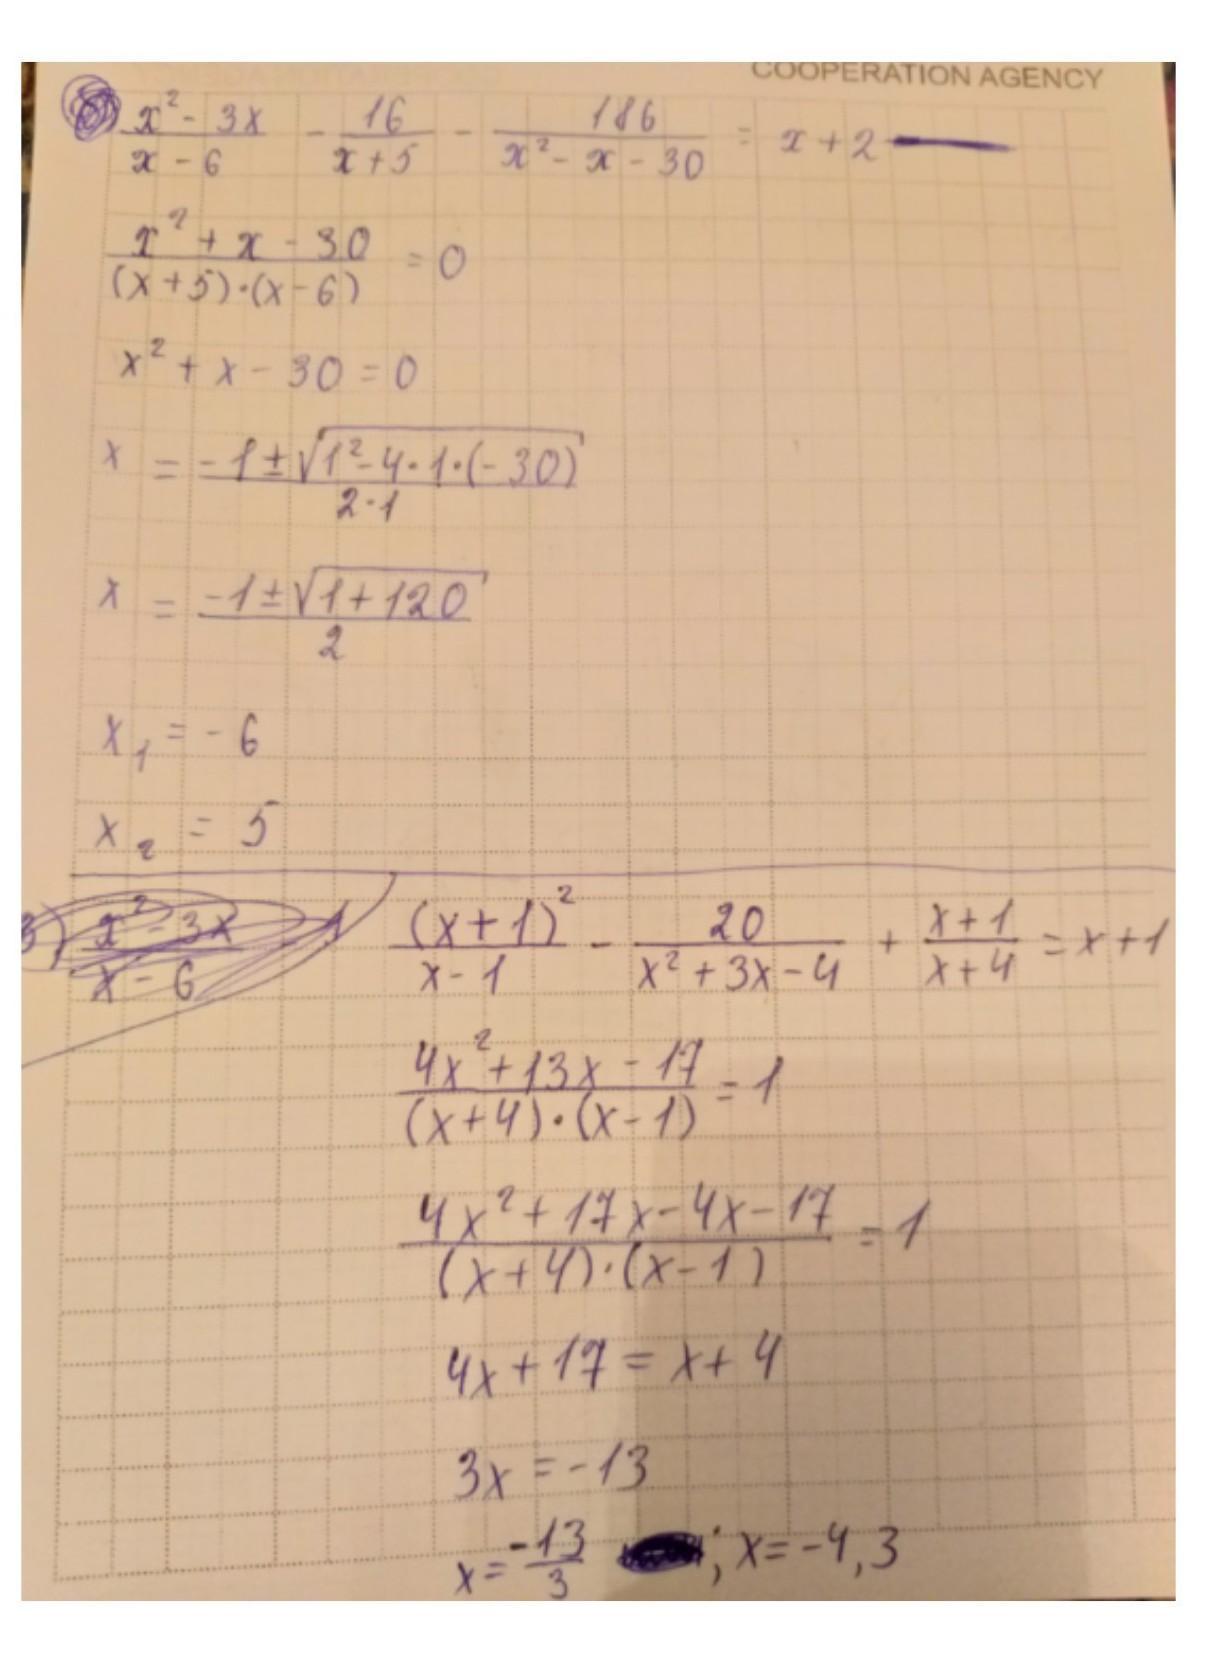 COOPERATION AGENCY
(x² - 3x)/(x - 6) - 16/(x + 5) - 186/(x² - x - 30) = x + 2
(x² + x - 30)/((x + 5)·(x - 6)) = 0
x² + x - 30 = 0
x = (-1 ± √(1² - 4·1·(-30)))/(2·1)
x = (-1 ± √(1 + 120))/2
x₁ = - 6
x₂ = 5
3) (x² - 3x)/(x - 6) (x + 1)²/(x - 1) - 20/(x² + 3x - 4) + (x + 1)/(x + 4) = x + 1
(4x² + 13x - 17)/((x + 4)·(x - 1)) = 1
(4x² + 17x - 4x - 17)/((x + 4)·(x - 1)) = 1
4x + 17 = x + 4
3x = -13
x = -13/3 ; x = -4,3